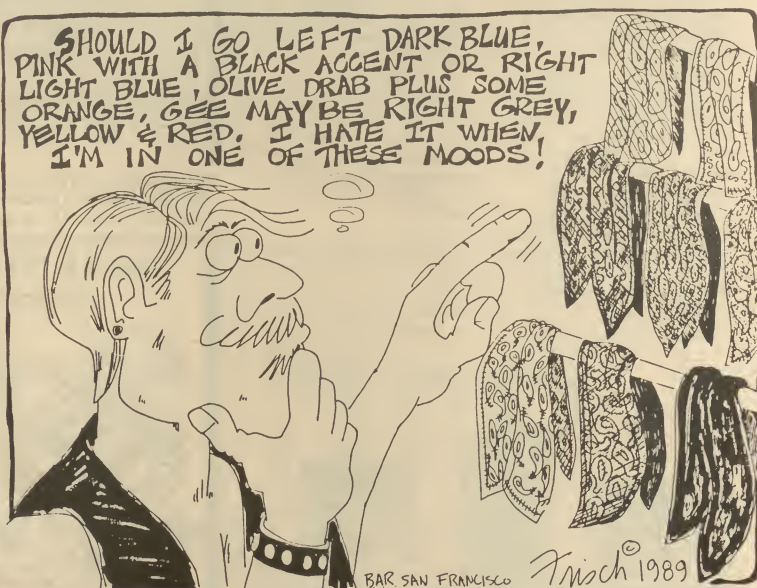 SHOULD I GO LEFT DARK BLUE,
PINK WITH A BLACK ACCENT OR RIGHT
LIGHT BLUE, OLIVE DRAB PLUS SOME
ORANGE, GEE MAYBE RIGHT GREY,
YELLOW & RED. I HATE IT WHEN
I'M IN ONE OF THESE MOODS!
BAR SAN FRANCISCO Frisch © 1989